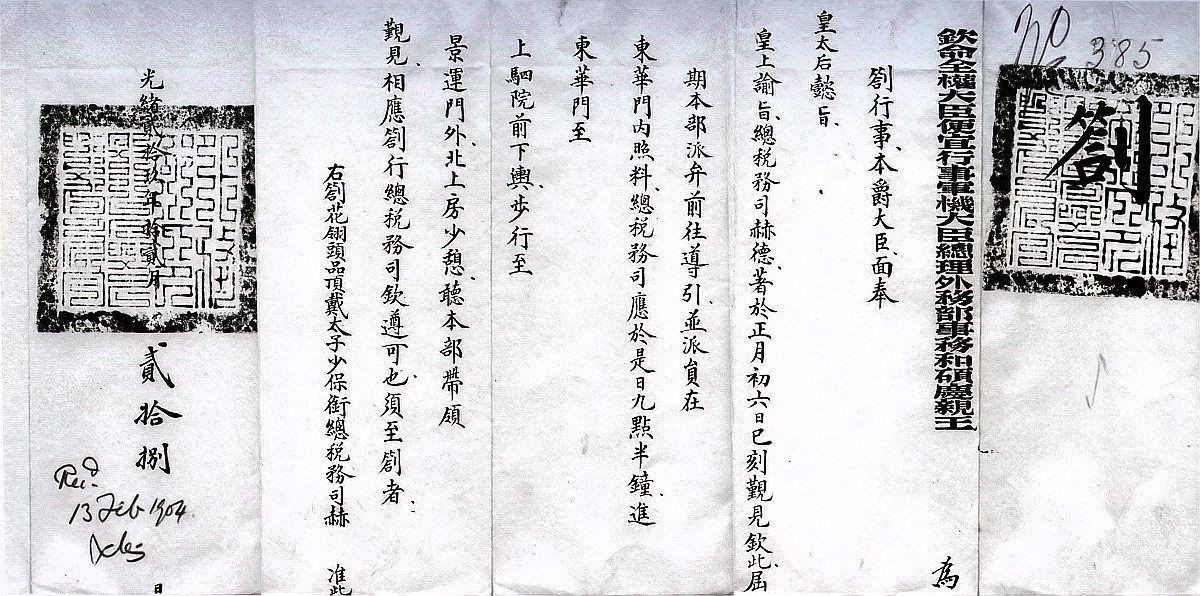 No 385
劄
欽命全權大臣便宜行事軍機大臣總理外務部事務和碩慶親王
為
劄行事本爵大臣面奉
皇太后懿旨
皇上諭旨總稅務司赫德著於正月初六日巳刻覲見欽此屆
期本部派弁前往導引並派員在
東華門內照料總稅務司應於是日九點半鐘進
東華門至
上駟院前下輿步行至
景運門外北上房少憩聽本部帶領
覲見相應劄行總稅務司欽遵可也須至劄者
右劄花翎頭品頂戴太子少保銜總稅務司赫
准此
光緒貳拾玖年拾貳月
貳拾捌
日
Rec.d
13 Feb 1904